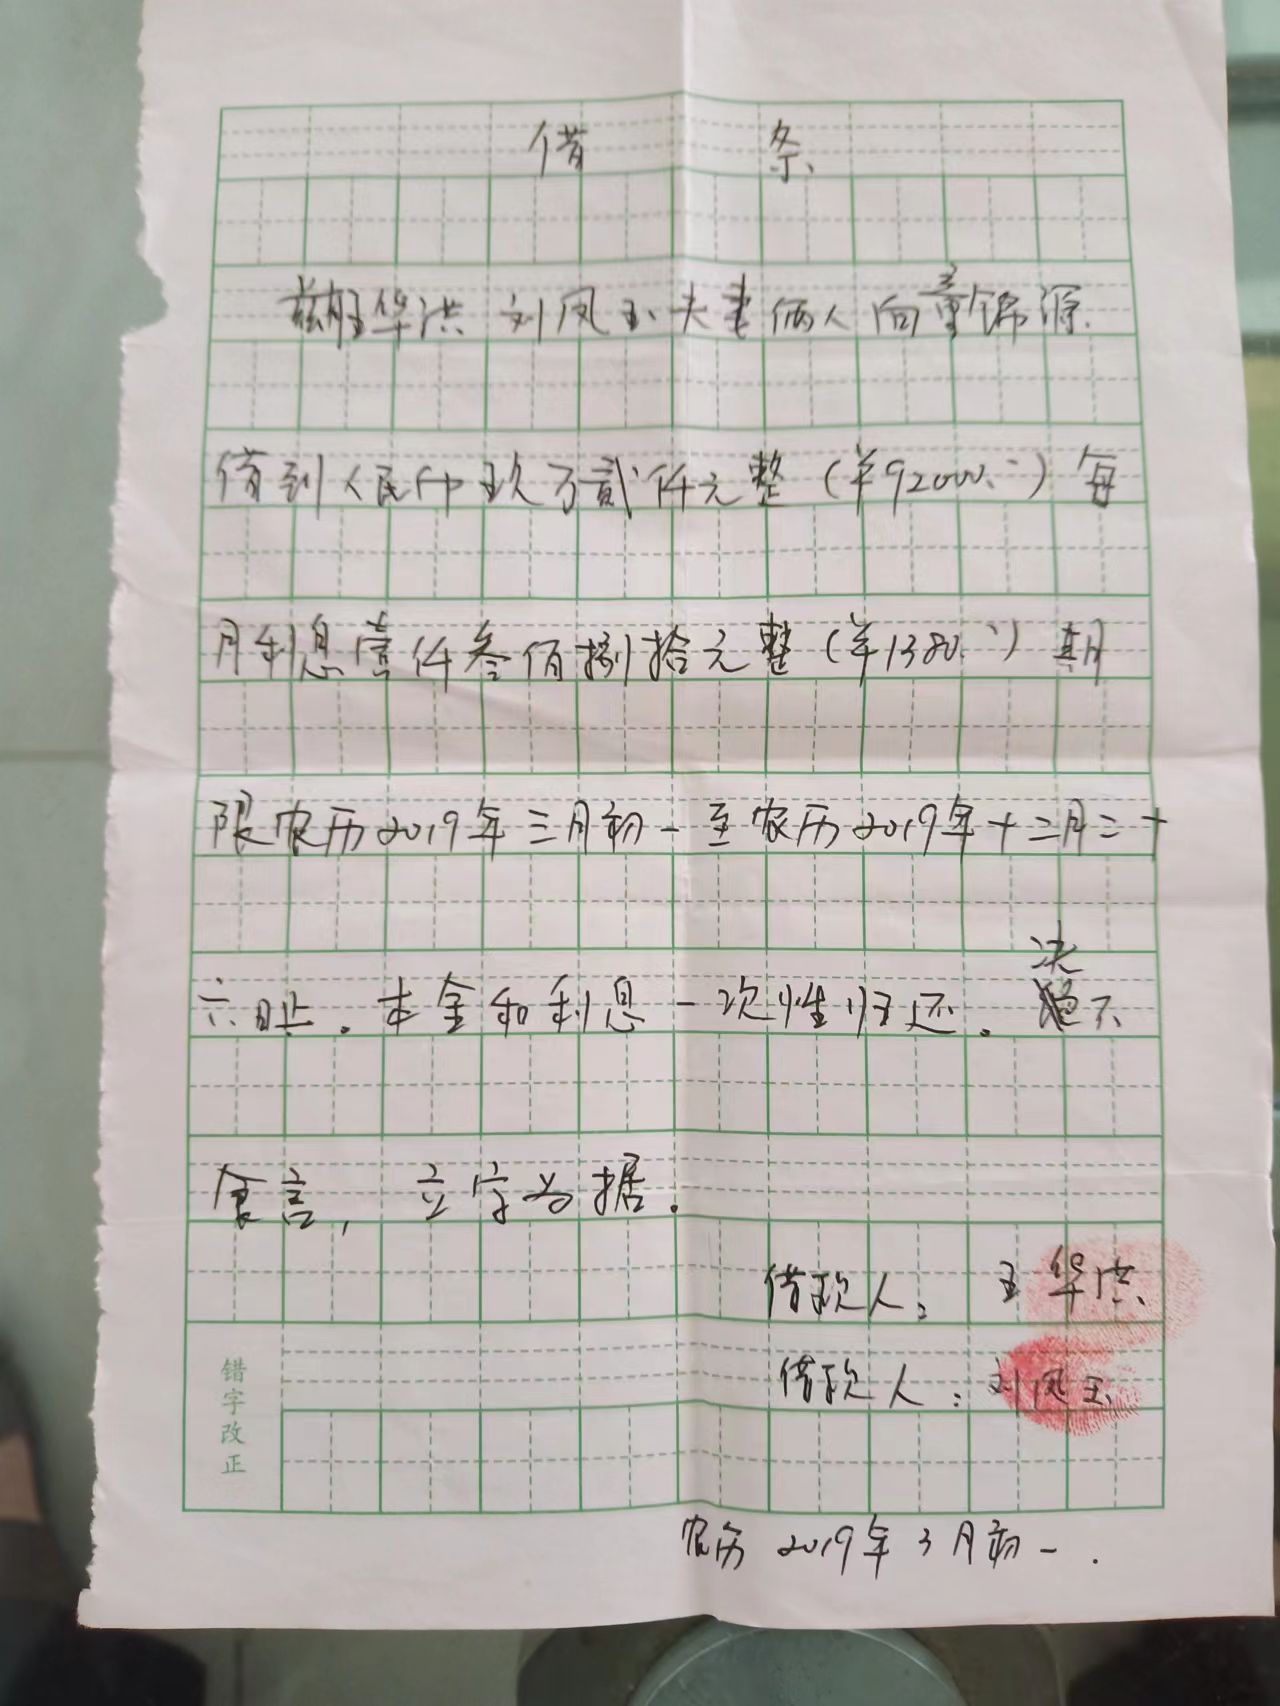 借 条
兹有王华洪 刘凤玉夫妻俩人向童锦源
借到人民币玖万贰仟元整(￥92000.:)每
月利息壹仟叁佰捌拾元整(￥1380.:)期
限农历2019年三月初一至农历2019年十二月二十
决
六日止。本金和利息一次性归还。不
食言,立字为据。
借款人: 王华洪
借款人:刘凤玉
错字改正
农历 2019年3月初一.